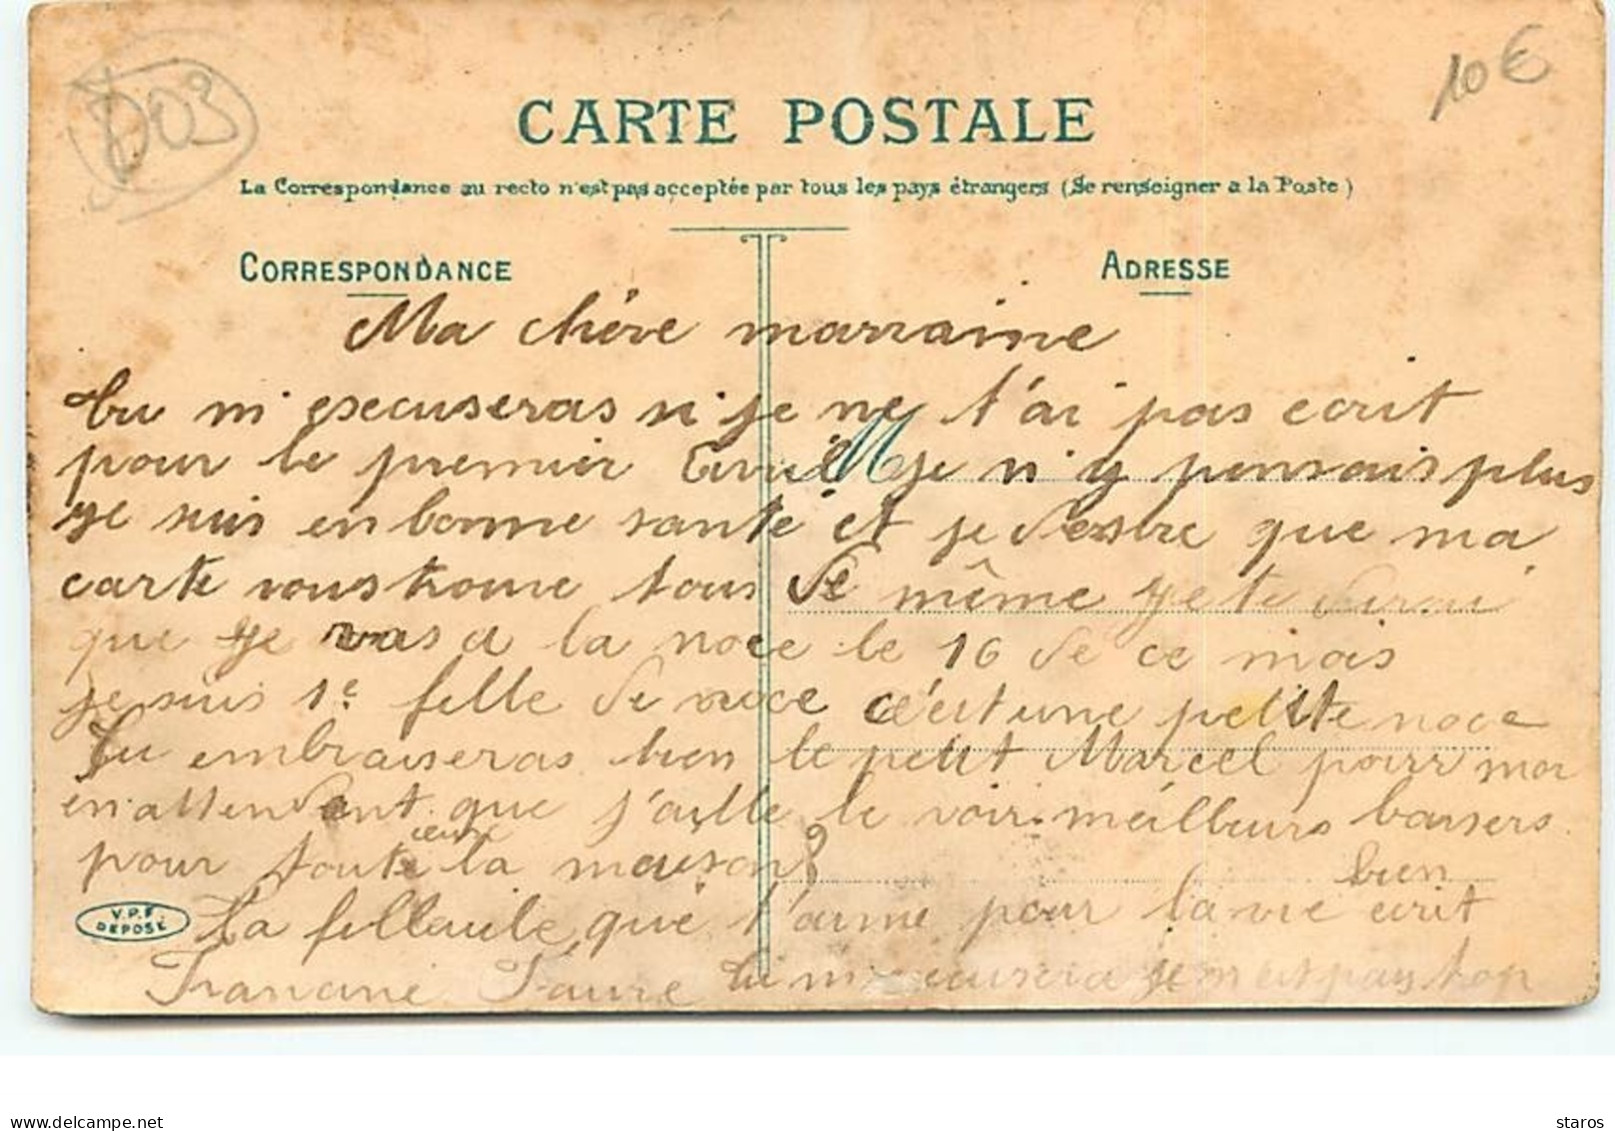 D03
10 €
CARTE POSTALE
La Correspondance au recto n'est pas acceptée par tous les pays étrangers (Se renseigner a la Poste)
CORRESPONDANCE
ADRESSE
Ma chère marraine
tu m'escecuseras si je ne t'ai pas ecrit
pour le premier Avril M je n'y pensais plus
je suis en bonne santé et je desire que ma
carte vous trouve tous de même je te dirai
que je vas a la noce le 16 de ce mois
je suis 1e fille de noce c'est une petite noce
Tu embrasseras bien le petit Marcel pour moi
en attendant que j'aille le voir meilleurs baisers
pour toute la maison
bien
V.P.F.
DEPOSÉ
La filleule que t'aime pour la vie ecrit
Faure tu m'excusera je n'est pas trop
www.delcampe.net
staros